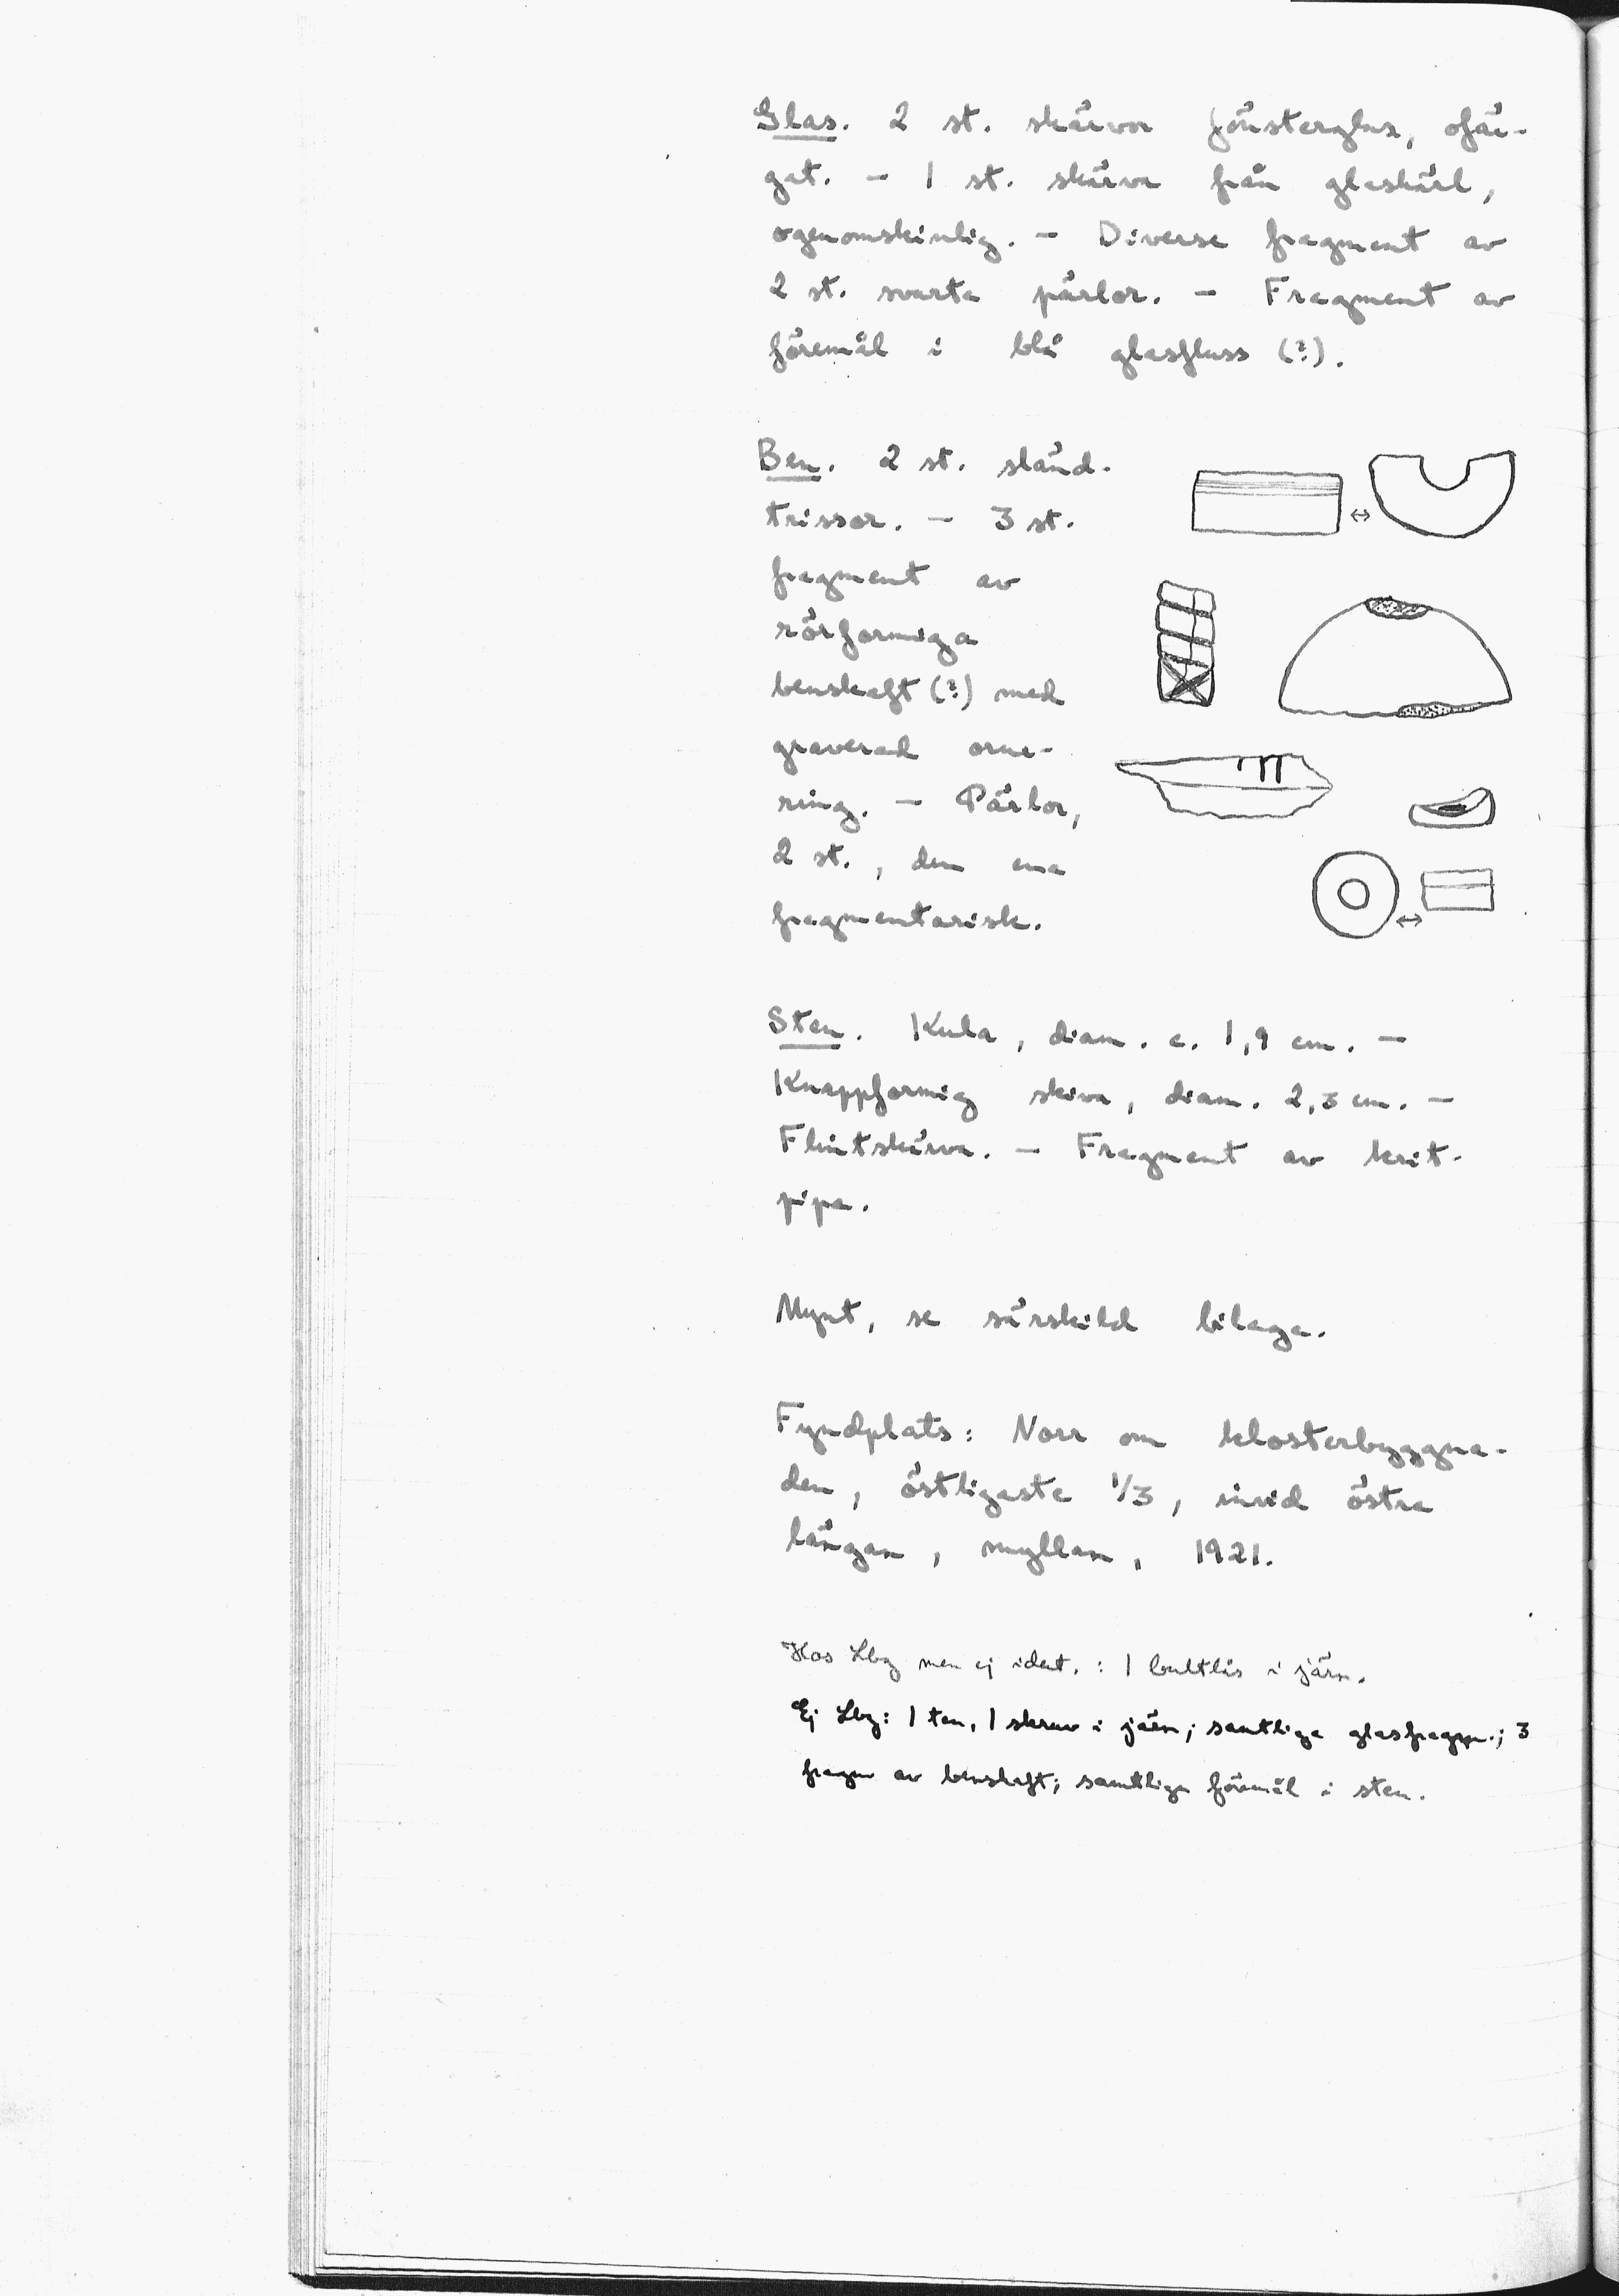 Glas. 2 st. skärvor fönsterglas, ofär-
gat. – 1 st. skärva från glaskärl,
ogenomskinlig. – Diverse fragment av
2 st. svarta pärlor. – Fragment av
föremål i blå glasfluss (?).
Ben. 2 st. sländ-
trissor. – 3 st.
fragment av
rörformiga
benskaft (?) med
graverad orne-
ring. – Pärlor,
2 st., den ena
fragmentarisk.
Sten. Kula, diam. c. 1,9 cm. –
Knappformig skiva, diam. 2,3 cm. –
Flintskärva. – Fragment av krit-
pipa.
Mynt, se särskild bilaga.
Fyndplats: Norr om klosterbyggna-
den, östligaste 1/3, invid östra
längan, myllan, 1921.
Hos Lbg men ej ident. : 1 bultlås i järn.
Ej Lbg: 1 ten, 1 skruv i järn; samtliga glasfragm.; 3
fragm av benskaft; samtliga föremål i sten.